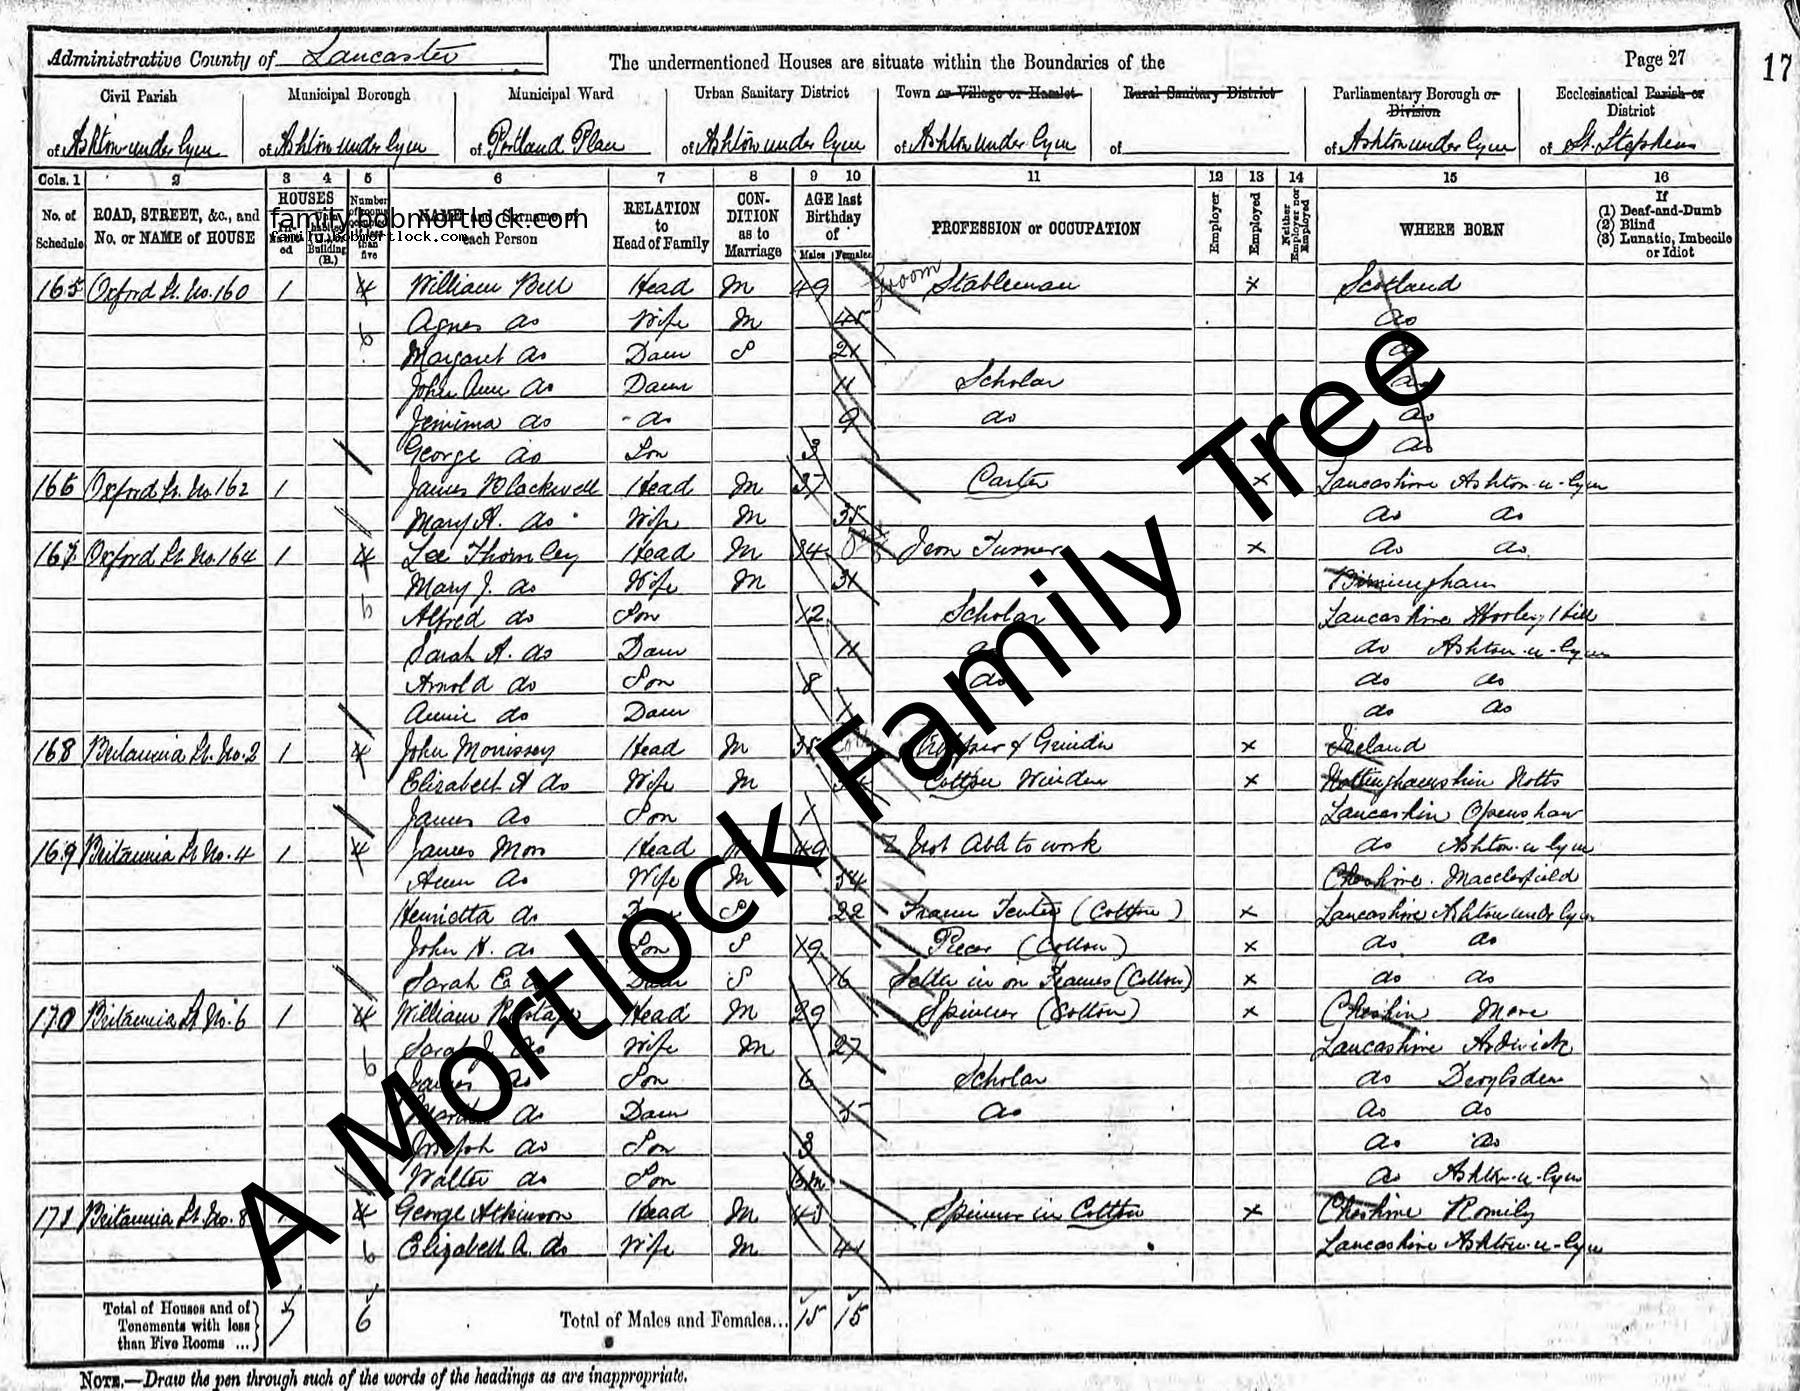 Administrative County of Lancaster
The undermentioned Houses are situate within the Boundaries of the
Page 27
17
Civil Parish
of Ashton under Lyne
Municipal Borough
of Ashton under Lyne
Municipal Ward
of Portland Place
Urban Sanitary District
of Ashton under Lyne
Town or Village or Hamlet
of Ashton under Lyne
Rural Sanitary District
of
Parliamentary Borough or Division
of Ashton under Lyne
Ecclesiastical Parish or District
of St. Stephens
Cols. 1 2 3 4 5 6 7 8 9 10 11 12 13 14 15 16
No. of Schedule
ROAD, STREET, &c., and No. or NAME of HOUSE
HOUSES
Building (B.)
NAME and Surname of each Person
RELATION to Head of Family
CONDITION as to Marriage
AGE last Birthday of
Males Females
PROFESSION or OCCUPATION
Employer
Employed
Neither Employer nor Employed
WHERE BORN
If
(1) Deaf-and-Dumb
(2) Blind
(3) Lunatic, Imbecile or Idiot
family.bobmortlock.com
family.bobmortlock.com
165 Oxford St. No. 160 1 4 William Bell Head M 49 Groom Stableman x Scotland
6 Agnes do Wife M 45 do
Margaret do Daur S 21 do
John Ann do Daur 11 Scholar do
Jemima do do 9 do do
George do Son 3 do
166 Oxford St. No 162 1 James Blackwell Head M 37 Carter x Lancashire Ashton-u-Lyne
Mary A. do Wife M 35 do do
167 Oxford St. No. 164 1 4 Lee Thornley Head M 34 Iron Turner x do do
Mary J. do Wife M 31 Birmingham
6 Alfred do Son 12 Scholar Lancashire
Sarah A. do Daur 11 do do Ashton-u-Lyne
Arnold do Son 8 do do do
Annie do Daur 1 do do
168 Britannia St. No. 2 1 4 John Morrissey Head M 35 & Grinder x Ireland
Elizabeth A do Wife M Cotton Winder x Nottinghamshire Notts
James do Son 1 Lancashire Openshaw
169 Britannia St No. 4 1 4 James Moss Head M 49 Not Able to work do Ashton-u-Lyne
Ann do Wife M 54 Cheshire Macclesfield
Henrietta do Daur S 22 Frame Tenter (Cotton) x Lancashire Ashton under Lyne
John H. do Son S 19 Piecer (Cotton) x do do
Sarah E do Daur S 16 Setter in on Frames (Cotton) x do do
170 Britannia St No. 6 1 4 William Head M 29 Spinner (Cotton) x Cheshire
6 Sarah J. do Wife M 27 Lancashire Ardwick
James do Son 6 Scholar do Droylsden
do Daur 5 do do do
Joseph do Son 3 do do
Walter do Son 6m do Ashton-u-Lyne
171 Britannia St. No. 8 1 4 George Atkinson Head M 43 Spinner in Cotton x Cheshire Romily
6 Elizabeth A. do Wife M 41 Lancashire Ashton-u-Lyne
Total of Houses and of Tenements with less than Five Rooms ... 7 6
Total of Males and Females... 15 15
NOTE.—Draw the pen through such of the words of the headings as are inappropriate.
A Mortlock Family Tree